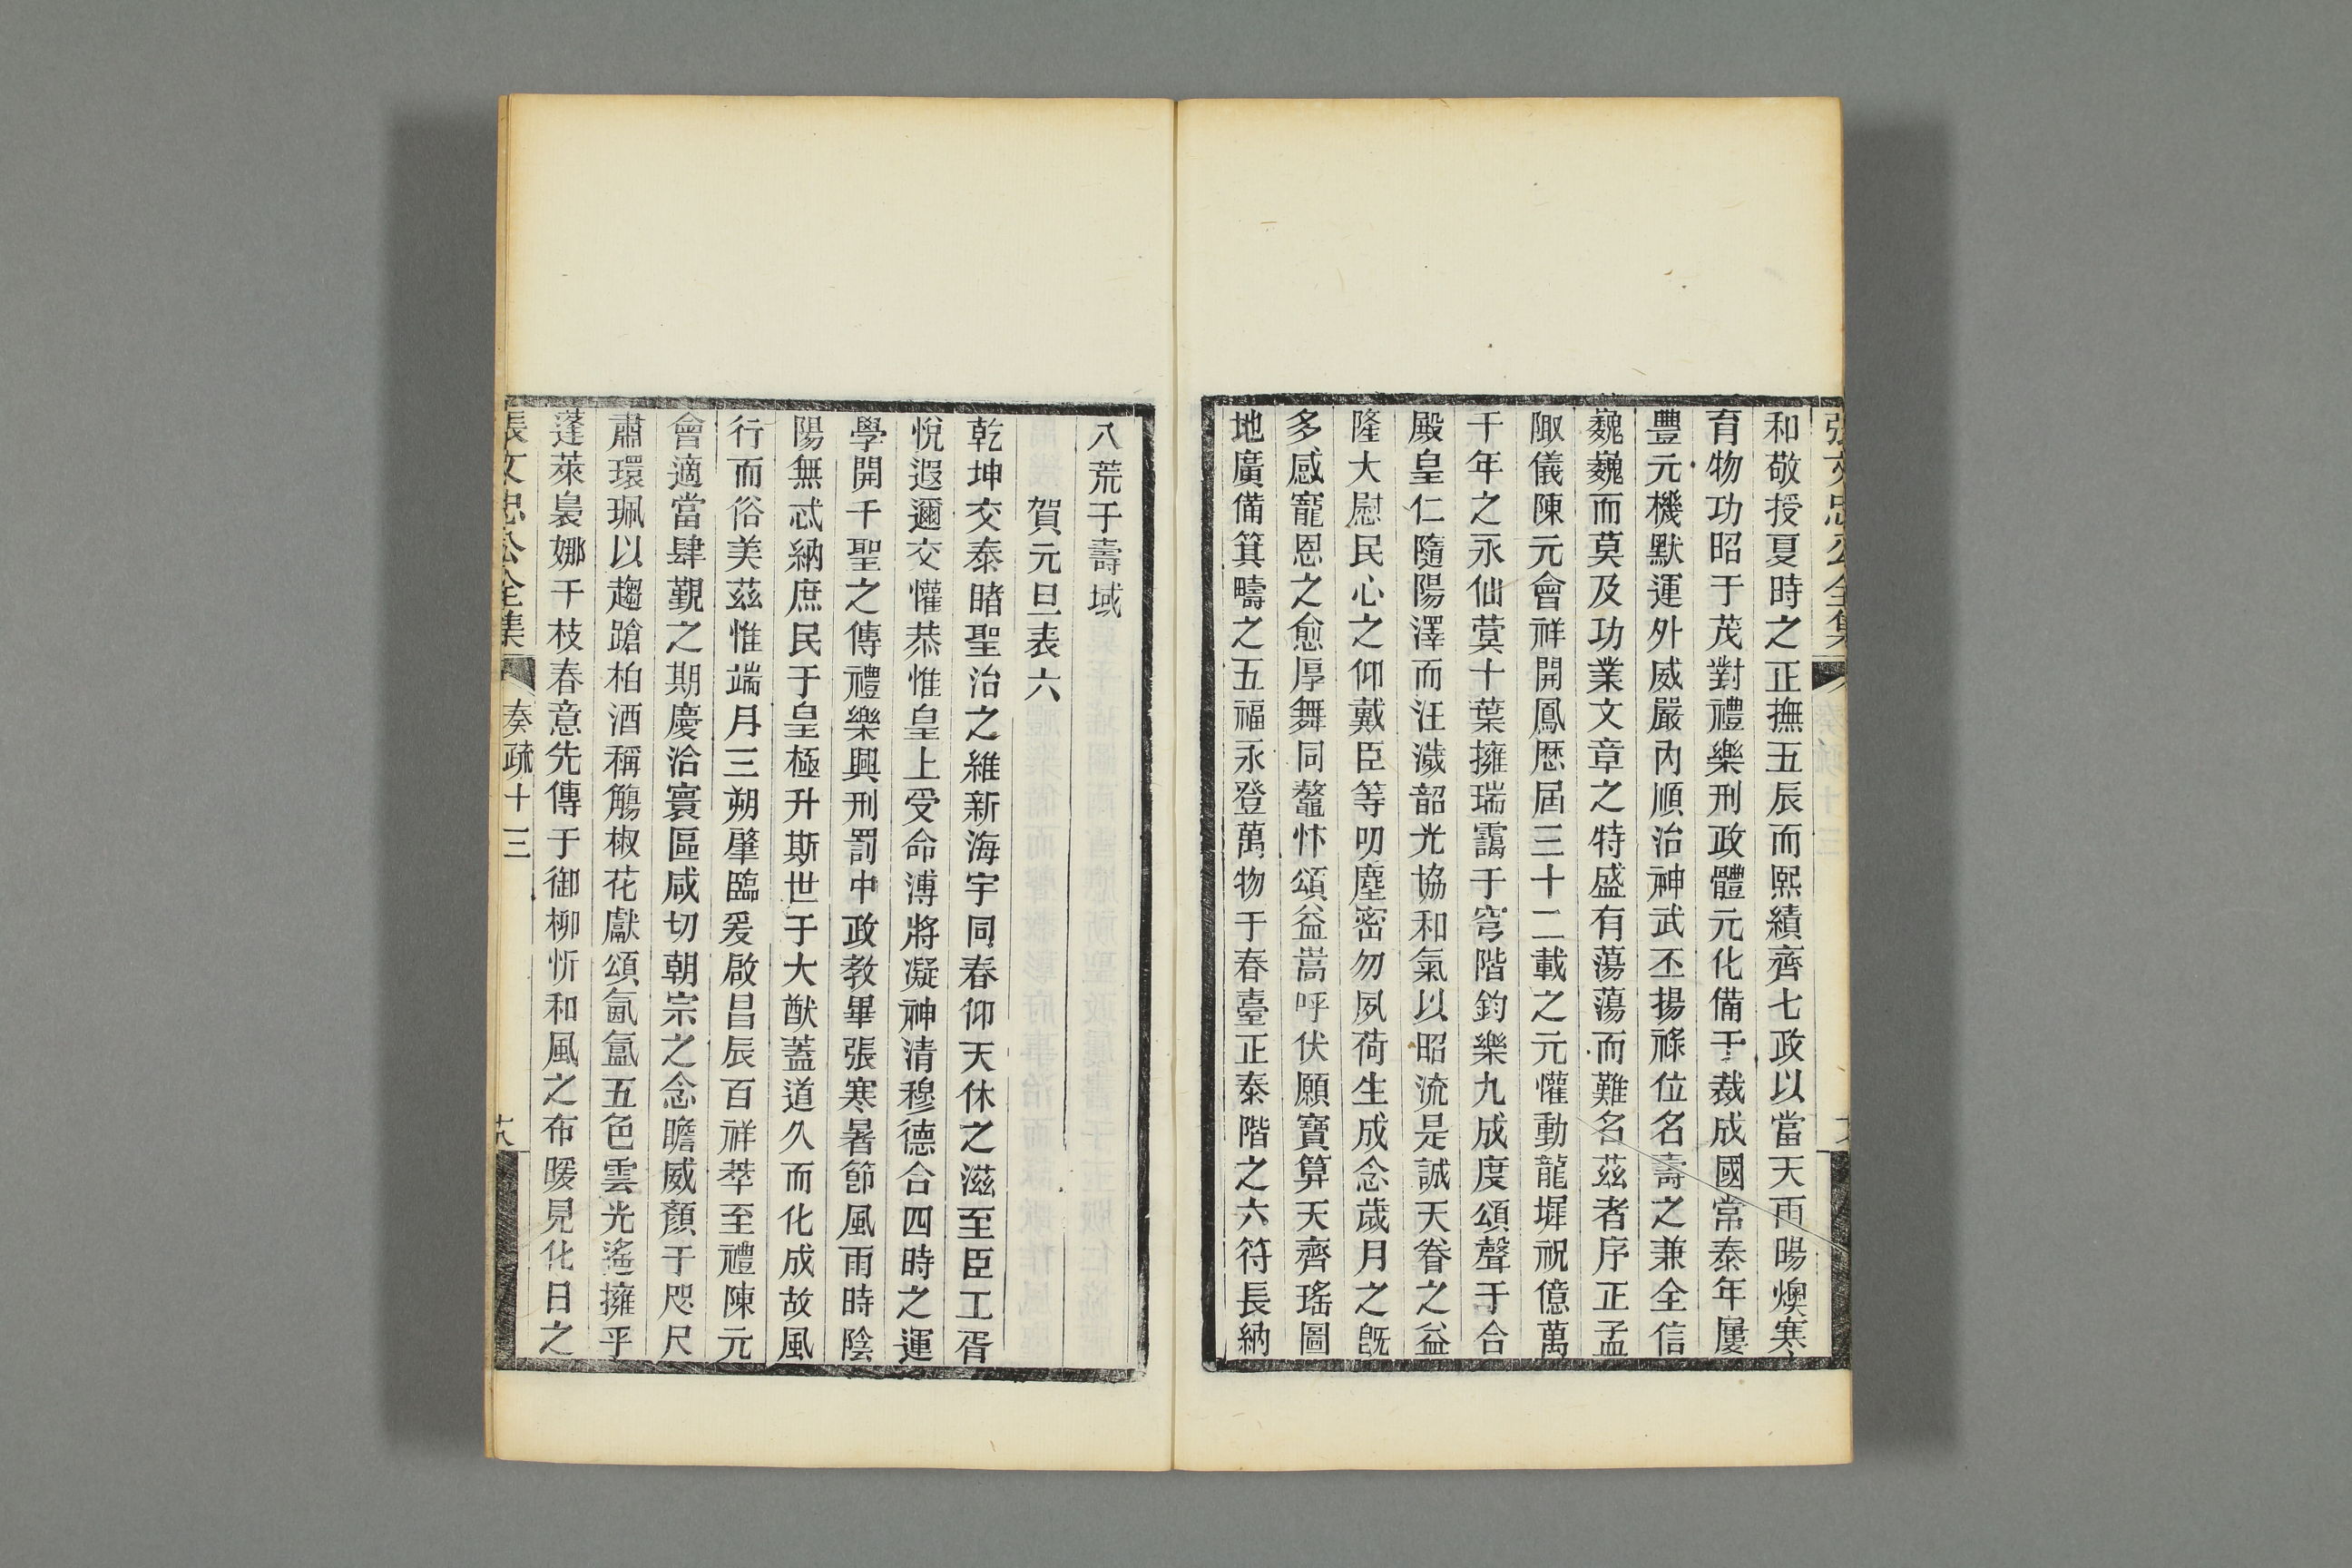 和敬授夏時之正撫五辰而熙績齊七政以當天雨暘燠寒
育物功昭于茂對禮樂刑政體元化備于裁成國常泰年屢
豐元機默運外威嚴內順治神武丕揚祿位名壽之兼全信
巍巍而莫及功業文章之特盛有蕩蕩而難名茲者序正孟
陬儀陳元會祥開鳳歷屆三十二載之元懽動龍墀祝億萬
千年之永仙蓂十葉擁瑞靄于穹階鈞樂九成度頌聲于合
殿皇仁隨陽澤而汪濊韶光協和氣以昭流是誠天眷之益
隆大慰民心之仰戴臣等叨塵密勿夙荷生成念歲月之旣
多感寵恩之愈厚舞同鼇忭頌益嵩呼伏願寶算天齊瑤圖
地廣備箕疇之五福永登萬物于春臺正泰階之六符長納
八荒于壽域
賀元旦表六
乾坤交泰睹聖治之維新海宇同春仰天休之滋至臣工胥
悅遐邇交懽恭惟皇上受命溥將凝神清穆德合四時之運
學開千聖之傳禮樂興刑罰中政教畢張寒暑節風雨時陰
陽無忒納庶民于皇極升斯世于大猷蓋道久而化成故風
行而俗美茲惟端月三朔肇臨爰啟昌辰百祥萃至禮陳元
會適當肆覲之期慶洽寰區咸切朝宗之念瞻威顏于咫尺
肅環珮以趨蹌柏酒稱觴椒花獻頌氤氳五色雲光遙擁乎
蓬萊裊娜千枝春意先傳于御柳忻和風之布暖見化日之
張文忠公全集
奏疏十三